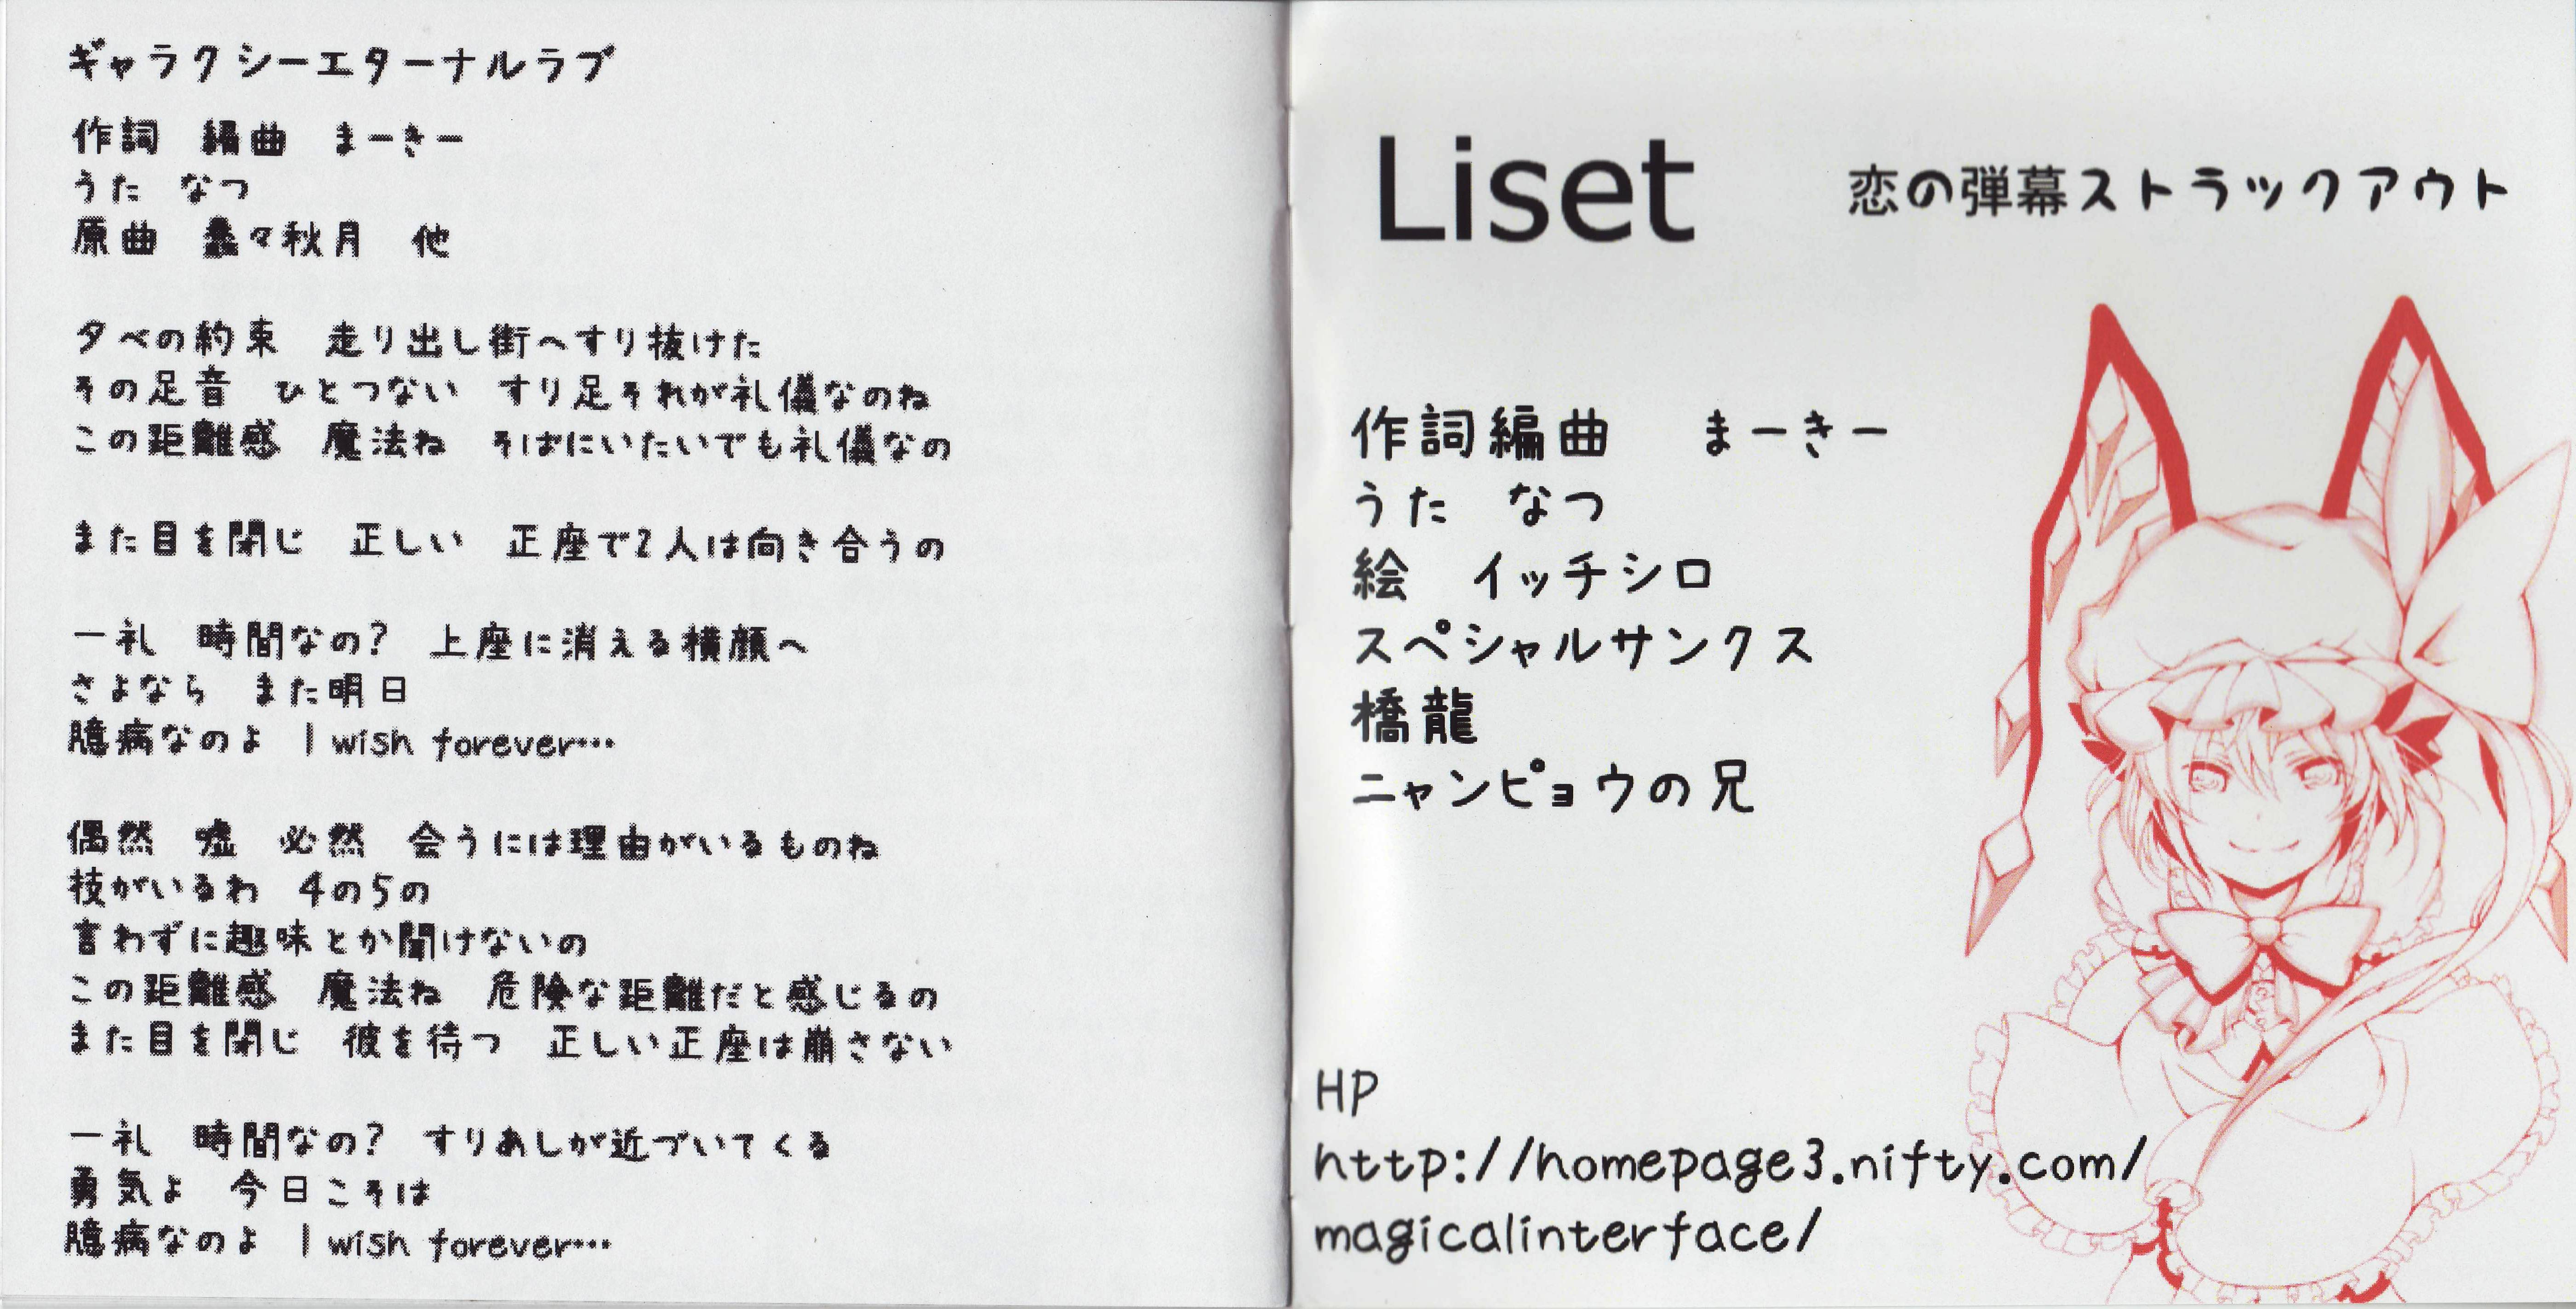 ギャラクシーエターナルラブ
作詞　編曲　まーきー
うた　なつ
原曲　蠢々秋月　他
夕べの約束　走り出し街へすり抜けた
その足音　ひとつない　すり足それが礼儀なのね
この距離感　魔法ね　そばにいたいでも礼儀なの
また目を閉じ　正しい　正座で2人は向き合うの
一礼　時間なの?　上座に消える横顔へ
さよなら　また明日
臆病なのよ　I wish forever…
偶然　嘘　必然　会うには理由がいるものね
技がいるわ　4の5の
言わずに趣味とか聞けないの
この距離感　魔法ね　危険な距離だと感じるの
また目を閉じ　彼を待つ　正しい正座は崩さない
一礼　時間なの?　すりあしが近づいてくる
勇気よ　今日こそは
臆病なのよ　I wish forever…
Liset　恋の弾幕ストラックアウト
作詞編曲　まーきー
うた　なつ
絵　イッチシロ
スペシャルサンクス
橋龍
ニャンピョウの兄
HP
http://homepage3.nifty.com/
magicalinterface/